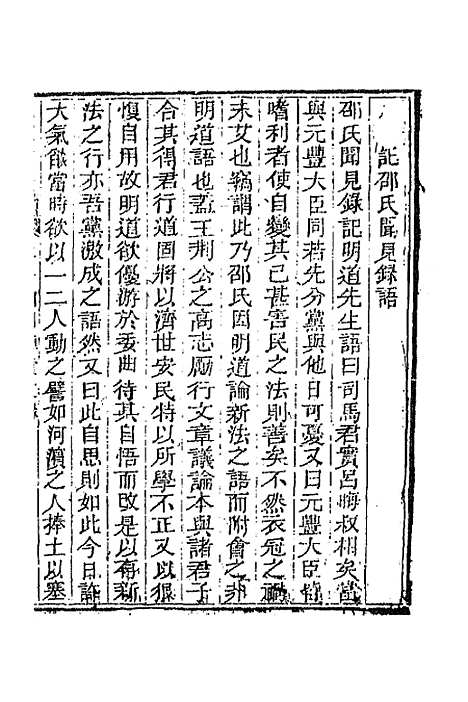 記邵氏聞見録語
邵氏聞見録記明道先生語曰司馬君實呂晦叔相矣當
與元豐大臣同若先分黨與他日可憂又曰元豐大臣皆
嗜利者使自變其已甚害民之法則善矣不然衣冠之禍
未艾也竊謂此乃邵氏因明道論新法之語而附會之非
明道語也蓋王荆公之高志厲行文章議論本與諸君子
合其得君行道固將以濟世安民特以所學不正又以狠
愎自用故明道欲優游於委曲待其自悟而改是以有新
法之行亦吾黨激成之語然又曰此自思則如此今日許
大氣燄當時欲以一二人動之譬如河濱之人捧土以塞